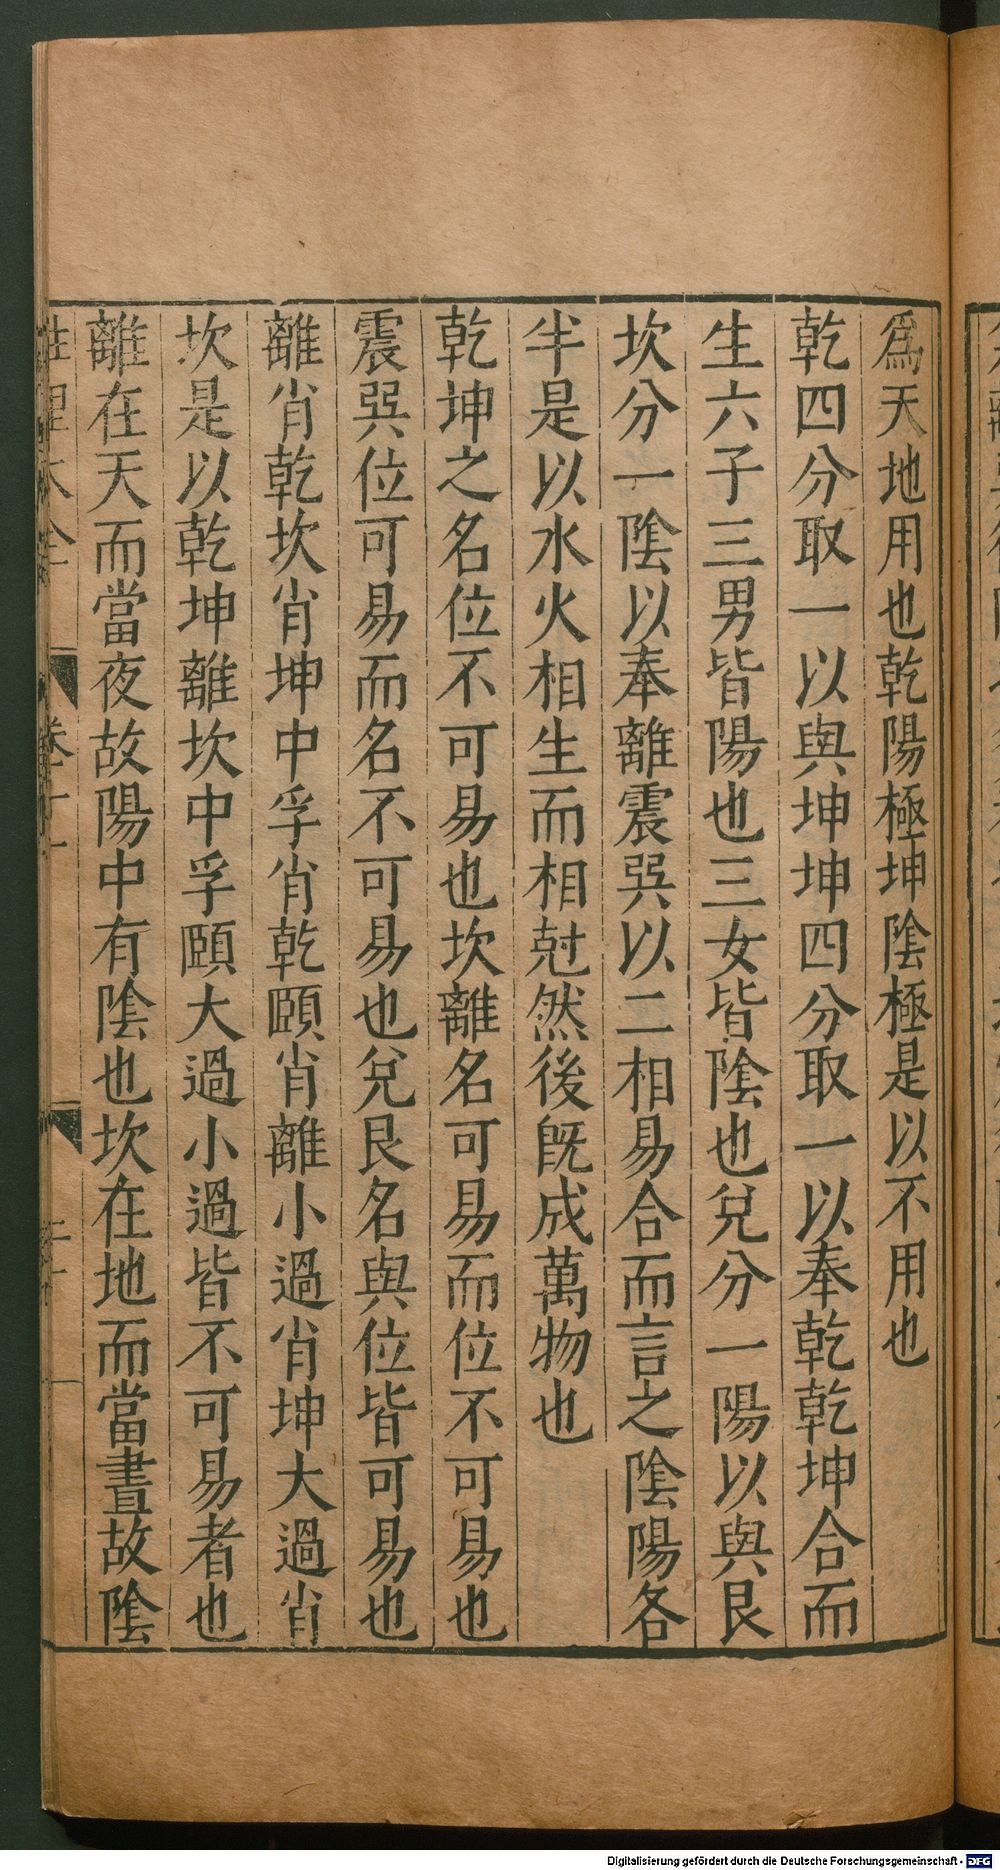 爲天地用也乾陽極坤陰極是以不用也
乾四分取一以與坤坤四分取一以奉乾乾坤合而
生六子三男皆陽也三女皆陰也兌分一陽以與艮
坎分一陰以奉離震巽以二相易合而言之陰陽各
半是以水火相生而相尅然後旣成萬物也
乾坤之名位不可易也坎離名可易而位不可易也
震巽位可易而名不可易也兌艮名與位皆可易也
離肖乾坎肖坤中孚肖乾頤肖離小過肖坤大過肖
坎是以乾坤離坎中孚頤大過小過皆不可易者也
離在天而當夜故陽中有陰也坎在地而當晝故陰
性理大全
Digitalisierung gefördert durch die Deutsche Forschungsgemeinschaft - DFG